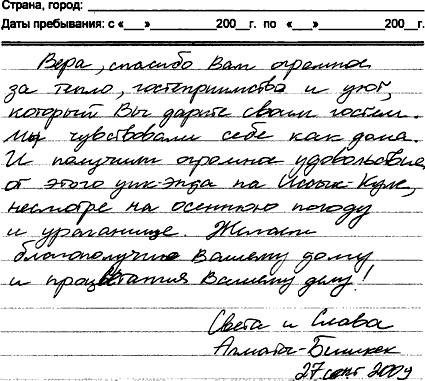 Страна, город:
Даты пребывания: с «___»__________200__г. по «___»__________200__г.
Вера, спасибо Вам огромное
за тепло, гостеприимство и уют,
который Вы дарите своим гостям.
Мы чувствовали себя как дома.
И получили огромное удовольствие
от этого уик-энда на Иссык-Куле,
несмотря на осеннюю погоду
и ураганище. Желаем
благополучия Вашему дому
и процветания Вашему делу!
Света и Слава
Алматы-Бишкек
27 сент 2009